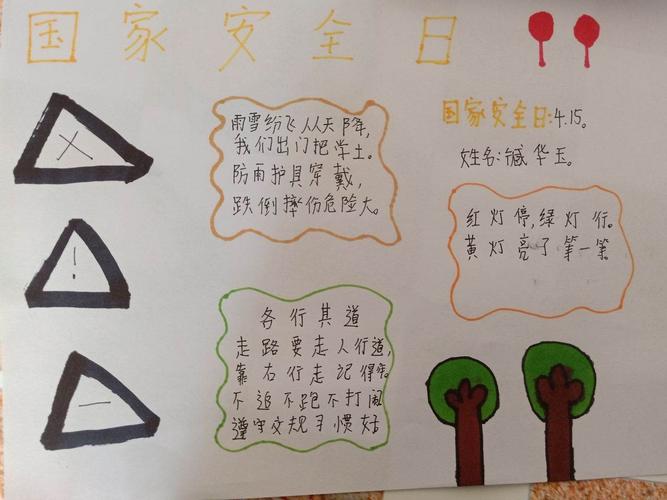 国家安全日
雨雪纷飞从天降,
我们出门把学土。
防雨护具穿戴,
跌倒摔伤危险大。
国家安全日:4.15。
姓名:臧华玉。
红灯停,绿灯行。
黄灯亮了等一等。
各行其道
走路要走人行道,
靠右行走记得牢。
不追不跑不打闹
遵守交规习惯好
×
!
一